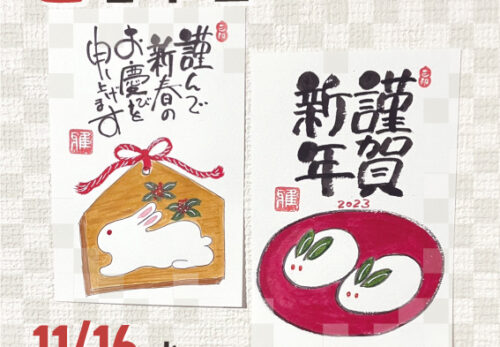 謹んで
新春の
お慶びを
申し上げます
謹賀
新年
2023
11/16